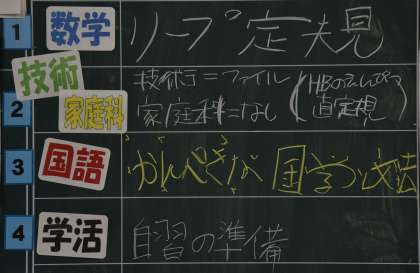 1 数学 リープ 定 夫見
技術 技術=ファイル (HBのえんぴつ
2 家庭科 家庭科=なし 直定規
3 国語 かんぺきな 国学 文法
4 学活 自習の準備